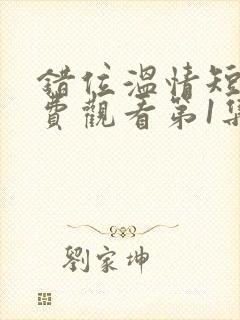 錯位溫情短
費觀看第1集
劉家坤